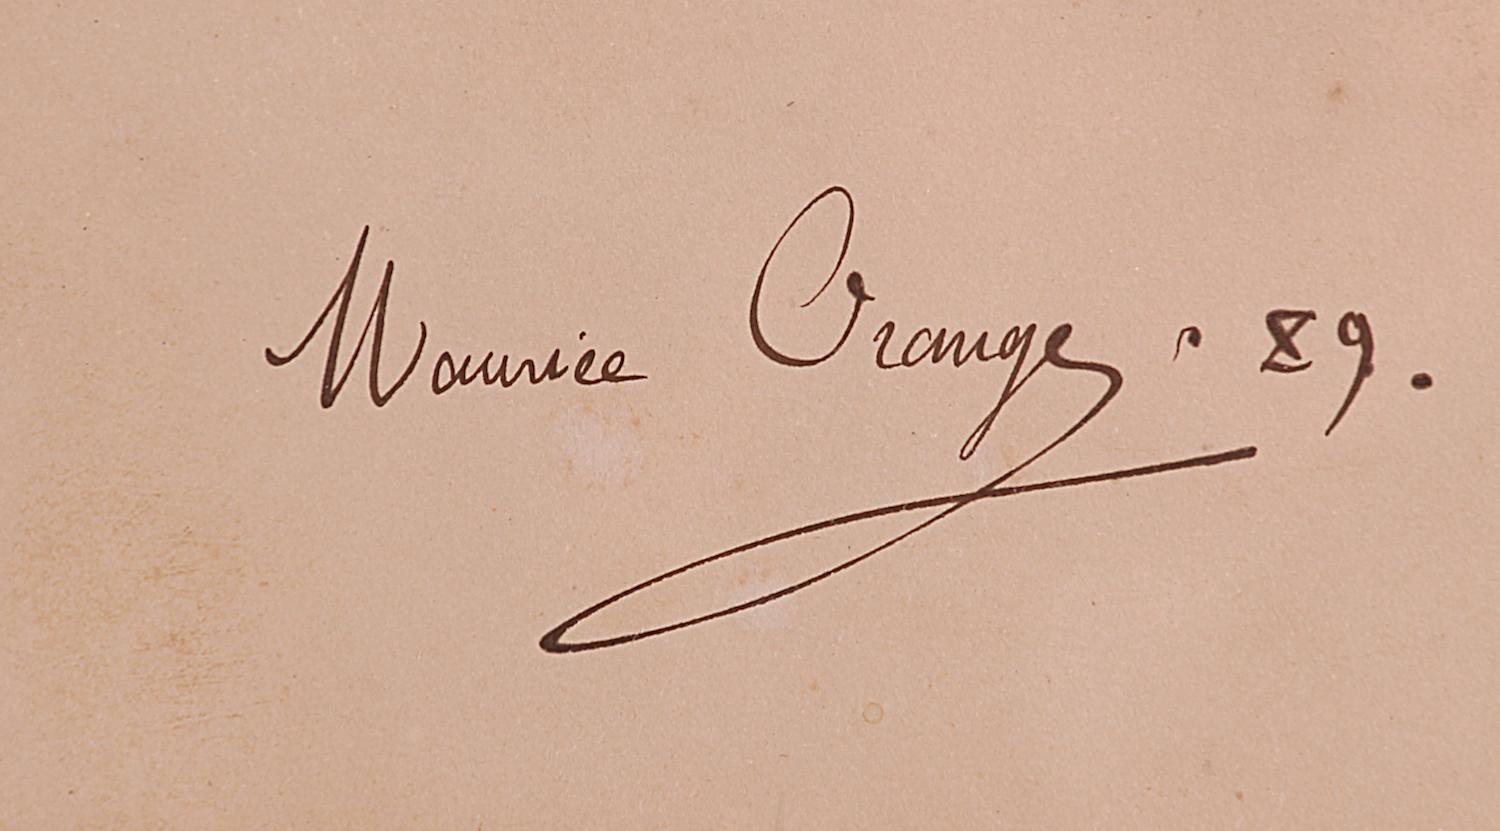 Maurice Orange . 89.